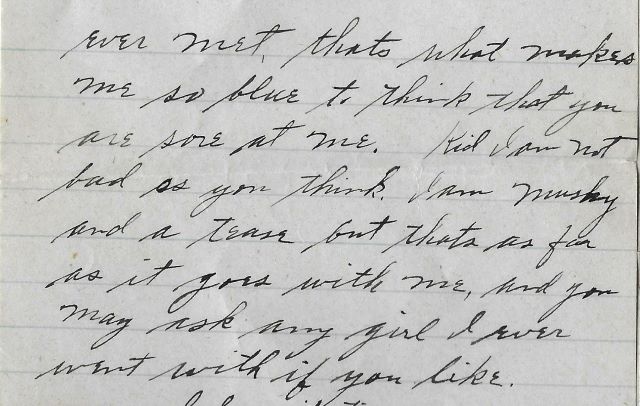 ever met, thats what makes
me so blue to think that you
are sore at me. Kid I am not
bad as you think. I am mushy
and a tease but thats as far
as it goes with me, and you
may ask any girl I ever
went with if you like.